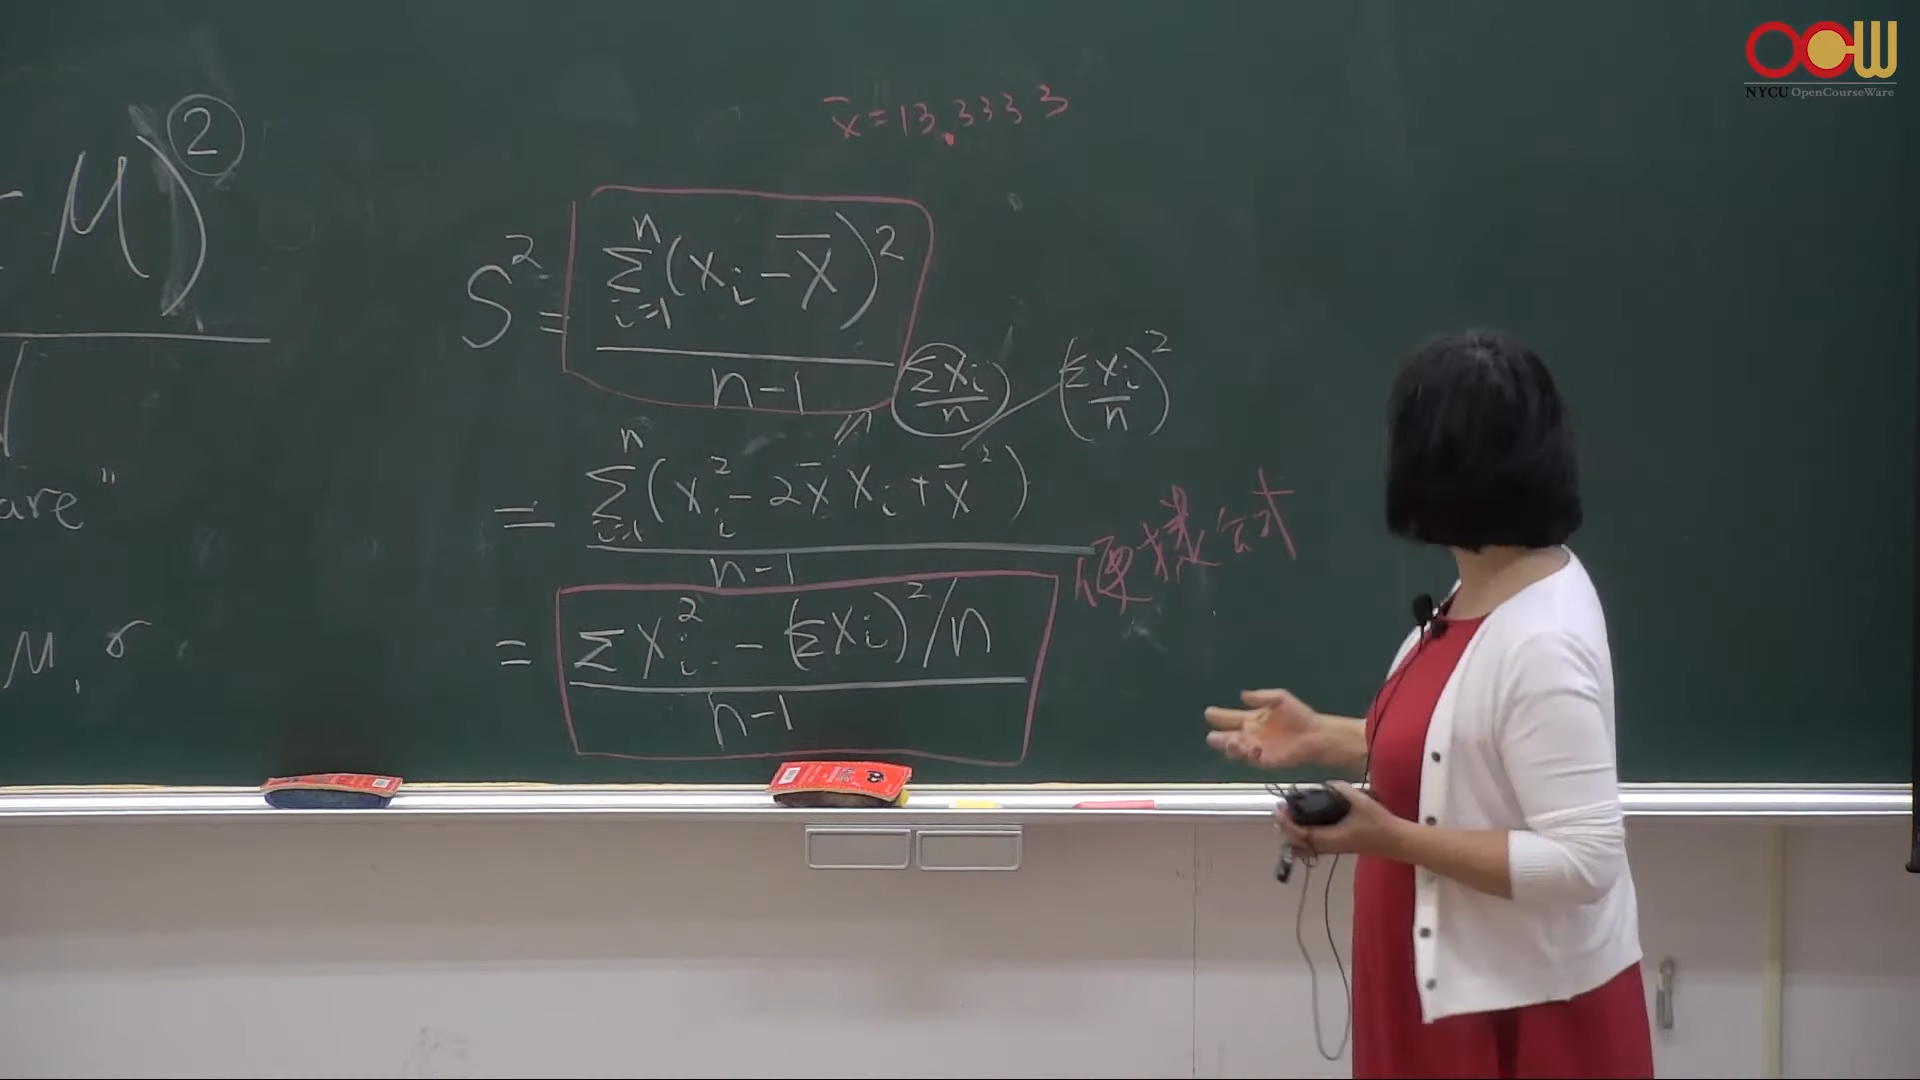 OCW
NYCU OpenCourseWare
x̄ = 13.3333
- μ)²
are"
μ, σ
S² = Σⁿᵢ₌₁(xᵢ - x̄)² / n-1
(Σxᵢ / n) (Σxᵢ / n)²
= Σⁿᵢ₌₁(xᵢ² - 2x̄xᵢ + x̄²) / n-1
便捷公式
= Σxᵢ² - (Σxᵢ)²/n / n-1